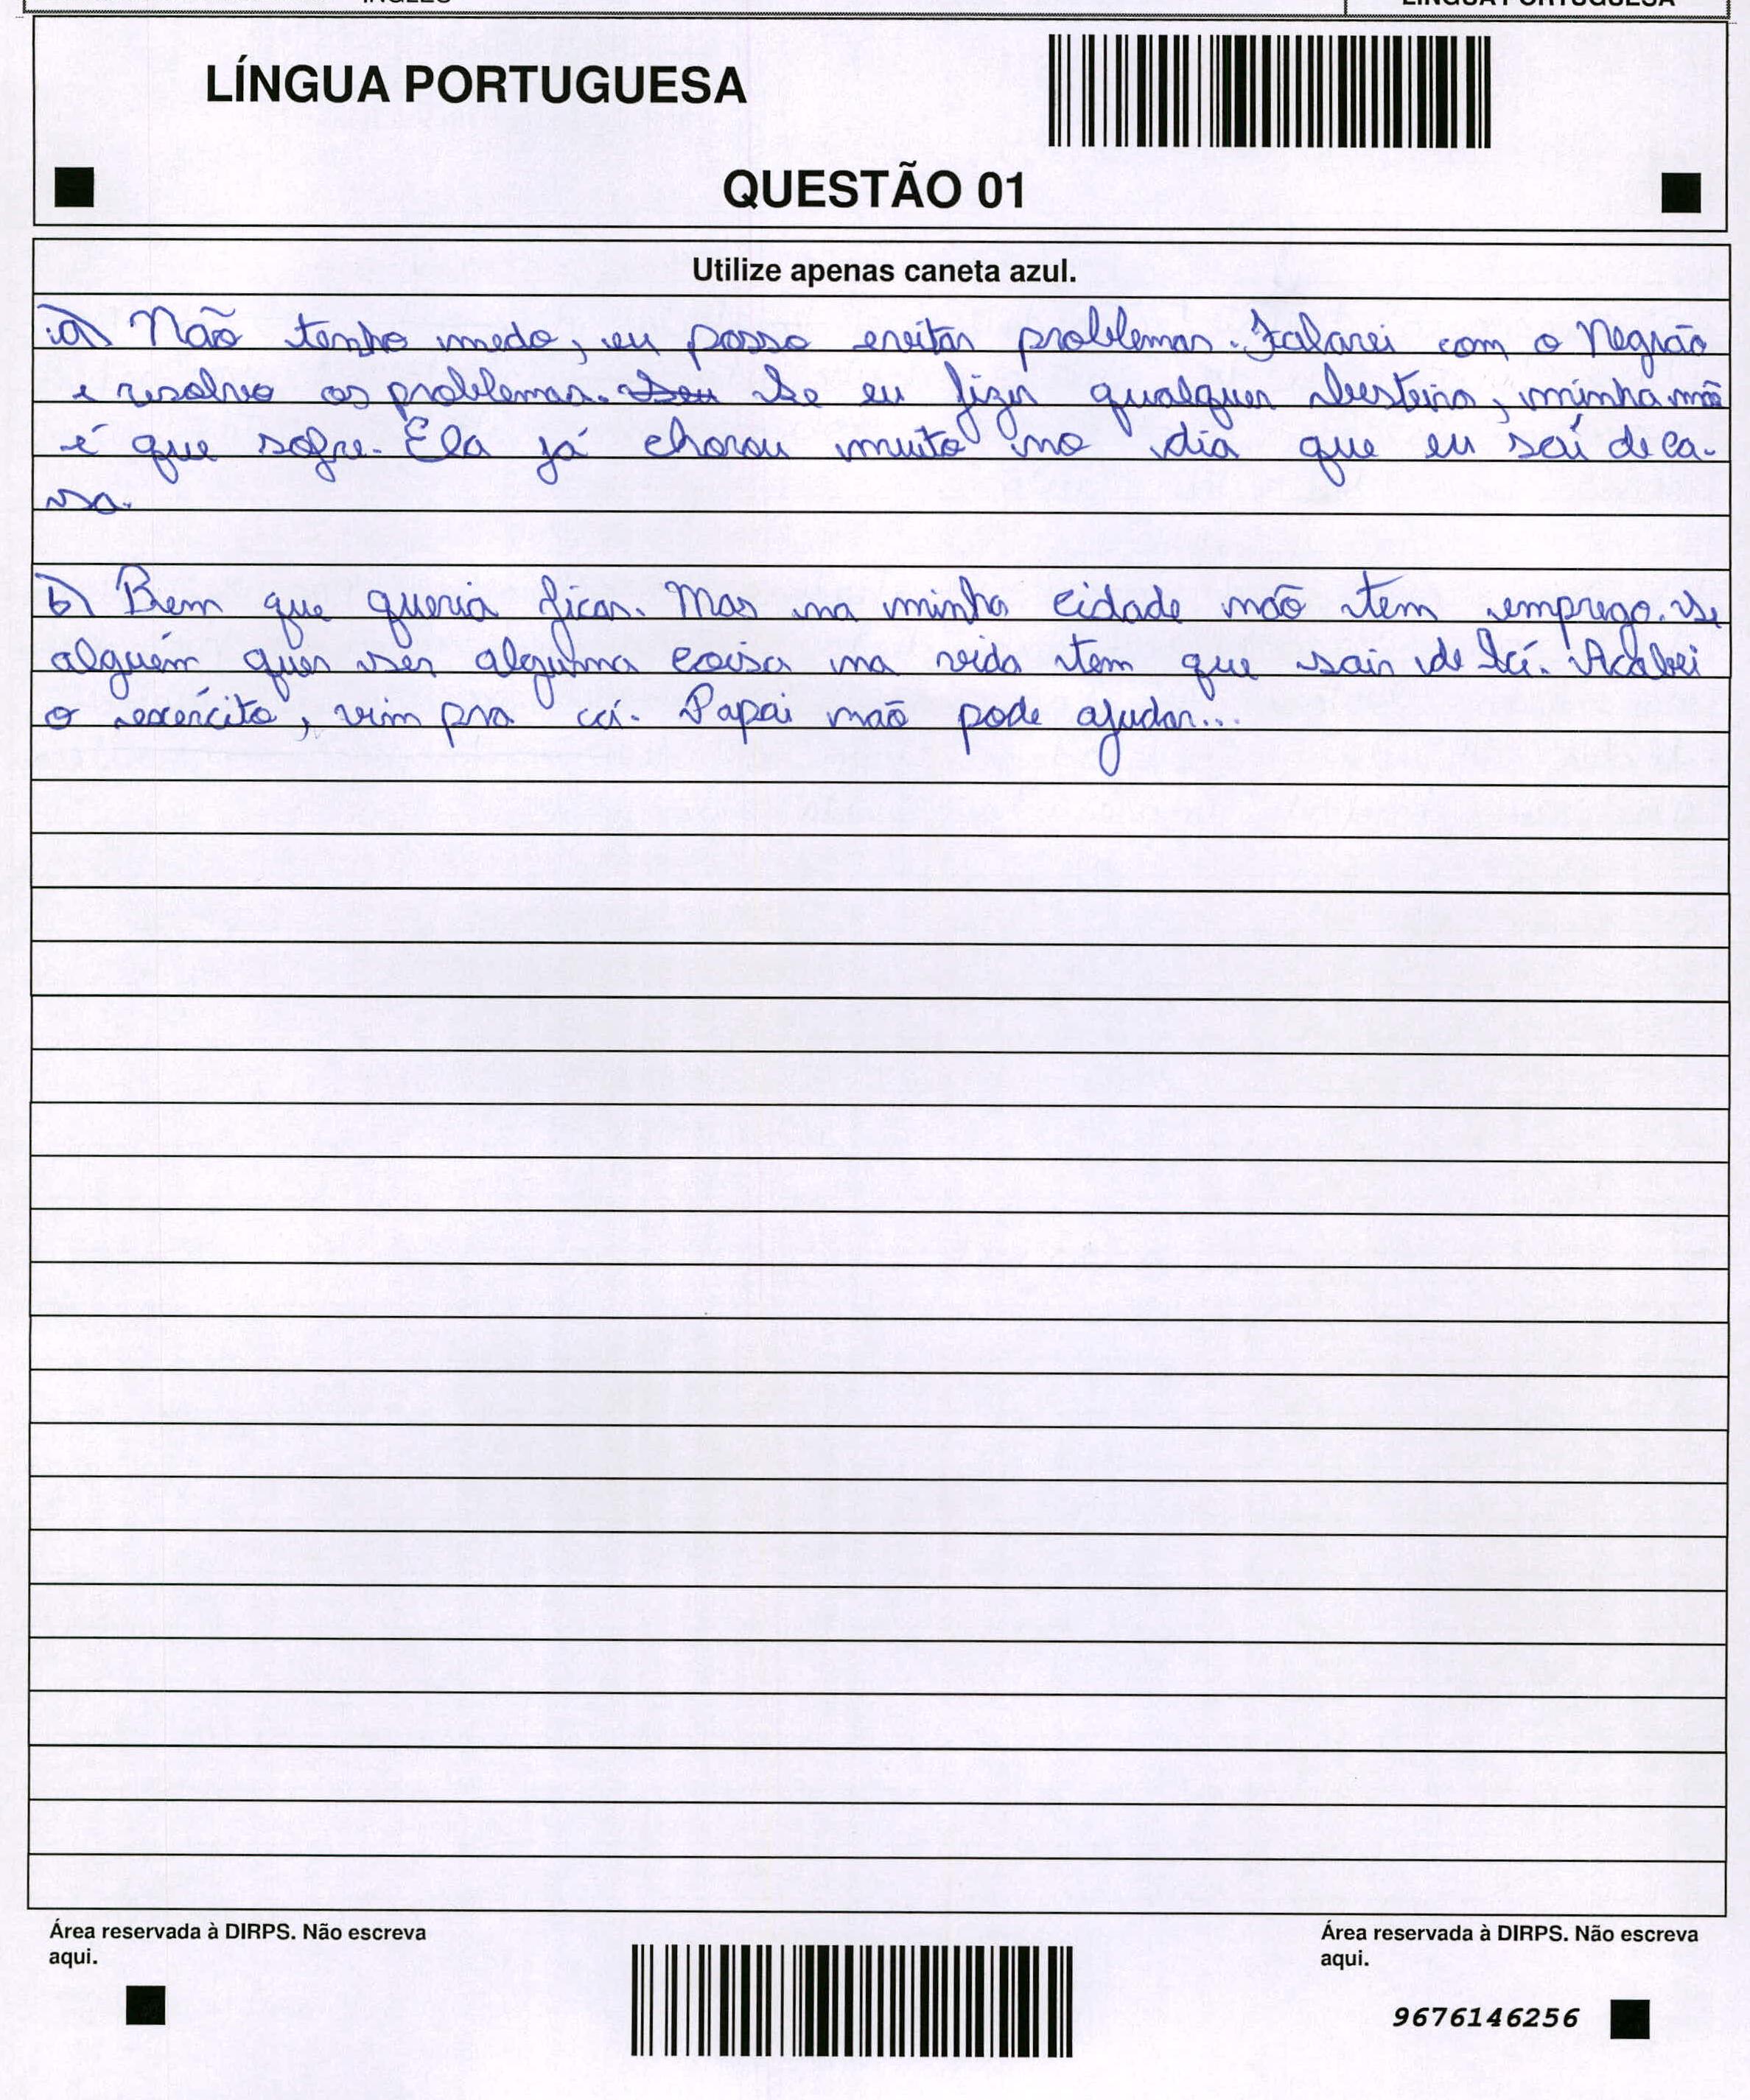 INGLÊS
LÍNGUA PORTUGUESA
LÍNGUA PORTUGUESA
QUESTÃO 01
Utilize apenas caneta azul.
a) Não tenho medo, eu posso evitar problemas. Falarei com o Negrão
e resolvo os problemas. Se eu fizer qualquer besteira, minha mãe
é que sofre. Ela já chorou muito no dia que eu saí de ca-
sa.
b) Bem que queria ficar. Mas na minha cidade não tem emprego. Se
alguém quer ser alguma coisa na vida tem que sair de lá. Acabei
o exército, vim pra cá. Papai não pode ajudar...
Área reservada à DIRPS. Não escreva
aqui.
Área reservada à DIRPS. Não escreva
aqui.
9676146256